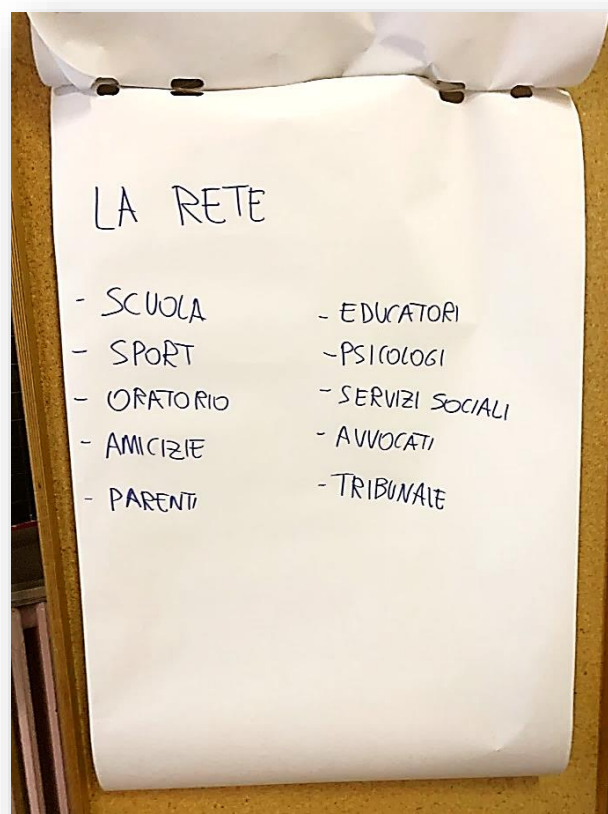 LA RETE
- SCUOLA
- SPORT
- ORATORIO
- AMICIZIE
- PARENTI
- EDUCATORI
- PSICOLOGI
- SERVIZI SOCIALI
- AVVOCATI
- TRIBUNALE